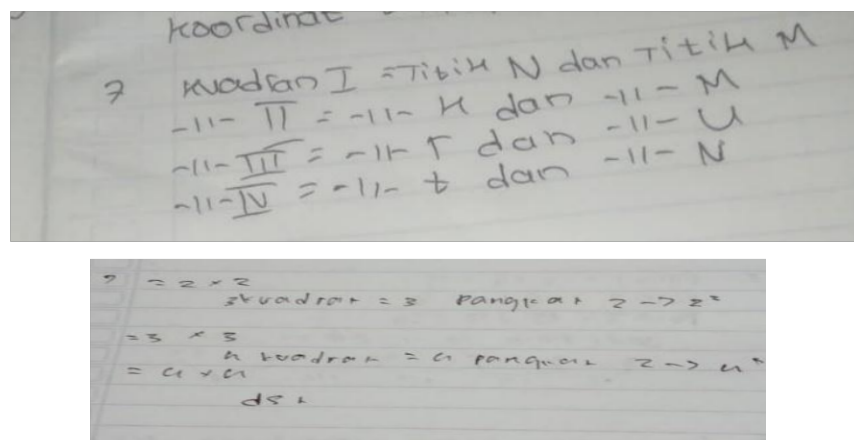 koordinat
7 Kuadran I = Titik N dan Titik M
-11- II = -11- K dan -11- M
-11- III = -11- r dan -11- U
-11- IV = -11- t dan -11- N
? = 2 x 2
3 kuadrat = 3 pangkat 2 -> 2²
= 3 x 3
4 kuadrat = 4 pangkat 2 -> 4²
= 4 x 4
dst